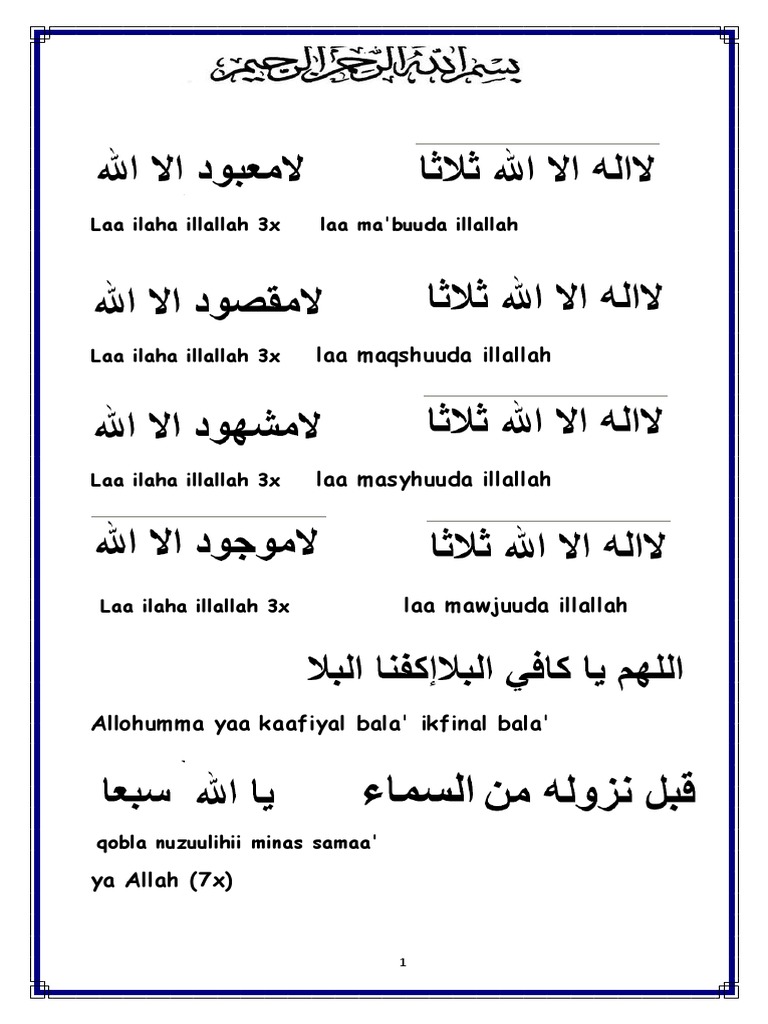 بسم الله الرحمن الرحيم
لااله الا الله ثلاثا لامعبود الا الله
Laa ilaha illallah 3x laa ma'buuda illallah
لااله الا الله ثلاثا لامقصود الا الله
Laa ilaha illallah 3x laa maqshuuda illallah
لااله الا الله ثلاثا لامشهود الا الله
Laa ilaha illallah 3x laa masyhuuda illallah
لااله الا الله ثلاثا لاموجود الا الله
Laa ilaha illallah 3x laa mawjuuda illallah
اللهم يا كافي البلاإكفنا البلا
Allohumma yaa kaafiyal bala' ikfinal bala'
قبل نزوله من السماء يا الله سبعا
qobla nuzuulihii minas samaa'
ya Allah (7x)
1